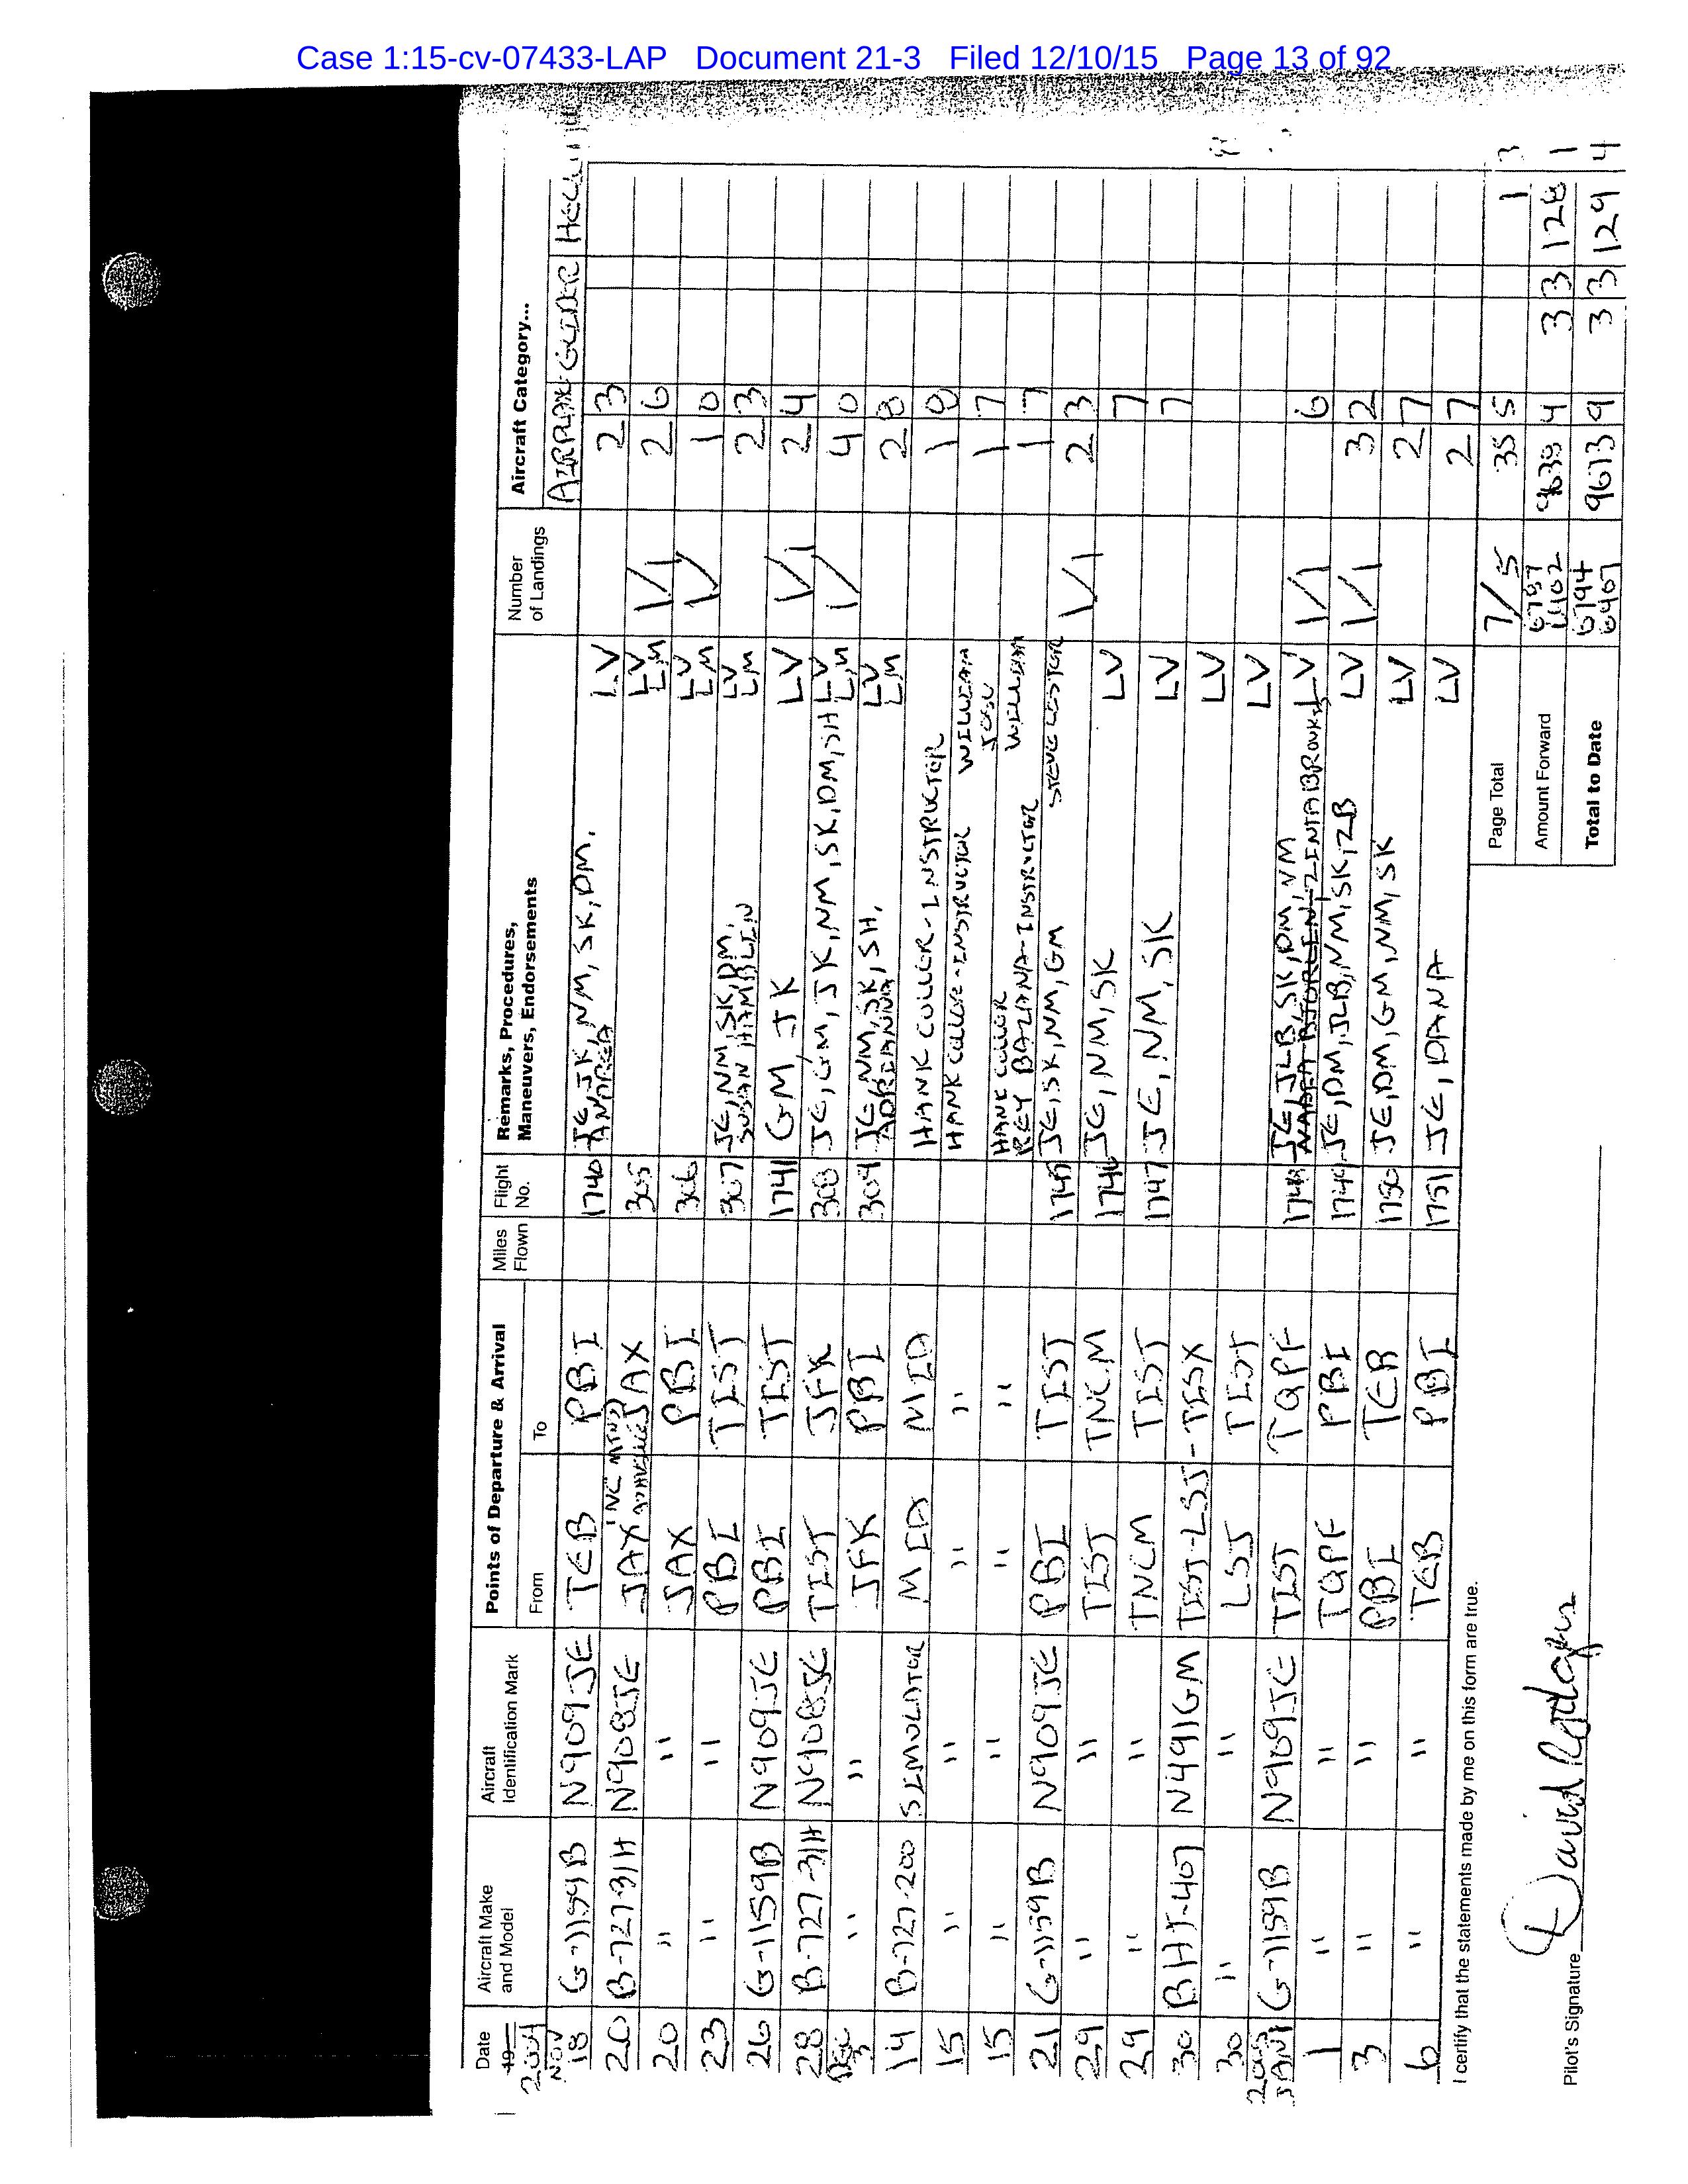 Case 1:15-cv-07433-LAP Document 21-3 Filed 12/10/15 Page 13 of 92
Date Aircraft Make and Model Aircraft Identification Mark Points of Departure & Arrival Miles Flown Flight No. Remarks, Procedures, Maneuvers, Endorsements Number of Landings Aircraft Category...
19 From To AIRPLANE GLIDER
2004
NOV
18 G-1159B N909JE TEB PBI 1740 JE, JK, NM, SK, DM, ANDREA LV 2 3
20 B-727-31H N908JE JAX JAX 305 LV LM 1/1 2 6
20 " " JAX PBI 306 LV LM 1/ 1 0
23 " " PBI TIST 307 JE, NM, SK, DM, SUSAN HAMBLIN LV LM 2 3
26 G-1159B N909JE PBI TIST 1741 GM, JK LV 1/1 2 4
28 B-727-31H N908JE TIST JFK 308 JE, GM, JK, NM, SK, DM, SH LV LM 1/ 4 0
DEC 3 " " JFK PBI 309 JE, NM, SK, SH, ADRIANNA LV LM 2 8
14 B-727-200 SIMULATOR MIA MIA HANK COLLER-INSTRUCTOR 1 8
15 " " " " HANK COLLER-INSTRUCTOR WILLIAM 1 7
15 " " " " HANK COLLER REY BAZIANA-INSTRUCTOR WILLIAM 1 7
21 G-1159B N909JE PBI TIST 1745 JE, SK, NM, GM STEVE LESTER 1/1 2 3
29 " " TIST TNCM 1746 JE, NM, SK LV 7
29 " " TNCM TIST 1747 JE, NM, SK LV 7
30 BHT-407 N491GM TIST-LSJ-TISX LV
30 " " LSJ TIST LV
2005
JAN 1 G-1159B N909JE TIST TQPF 1748 JE, JLB, SK, DM, NM LV 1/1 6
1 " " TQPF PBI 1749 JE, DM, JLB, NM, SK, ZB LV 1/1 3 2
3 " " PBI TEB 1750 JE, DM, GM, NM, SK LV 2 7
6 " " TEB PBI 1751 JE, DANA LV 2 7
I certify that the statements made by me on this form are true.
Page Total 7/5 35 5 1 3
Amount Forward 6787 4 3 3 128 1
Total to Date 6794 6407 9613 9 3 3 129 4
Pilot's Signature David Rodgers